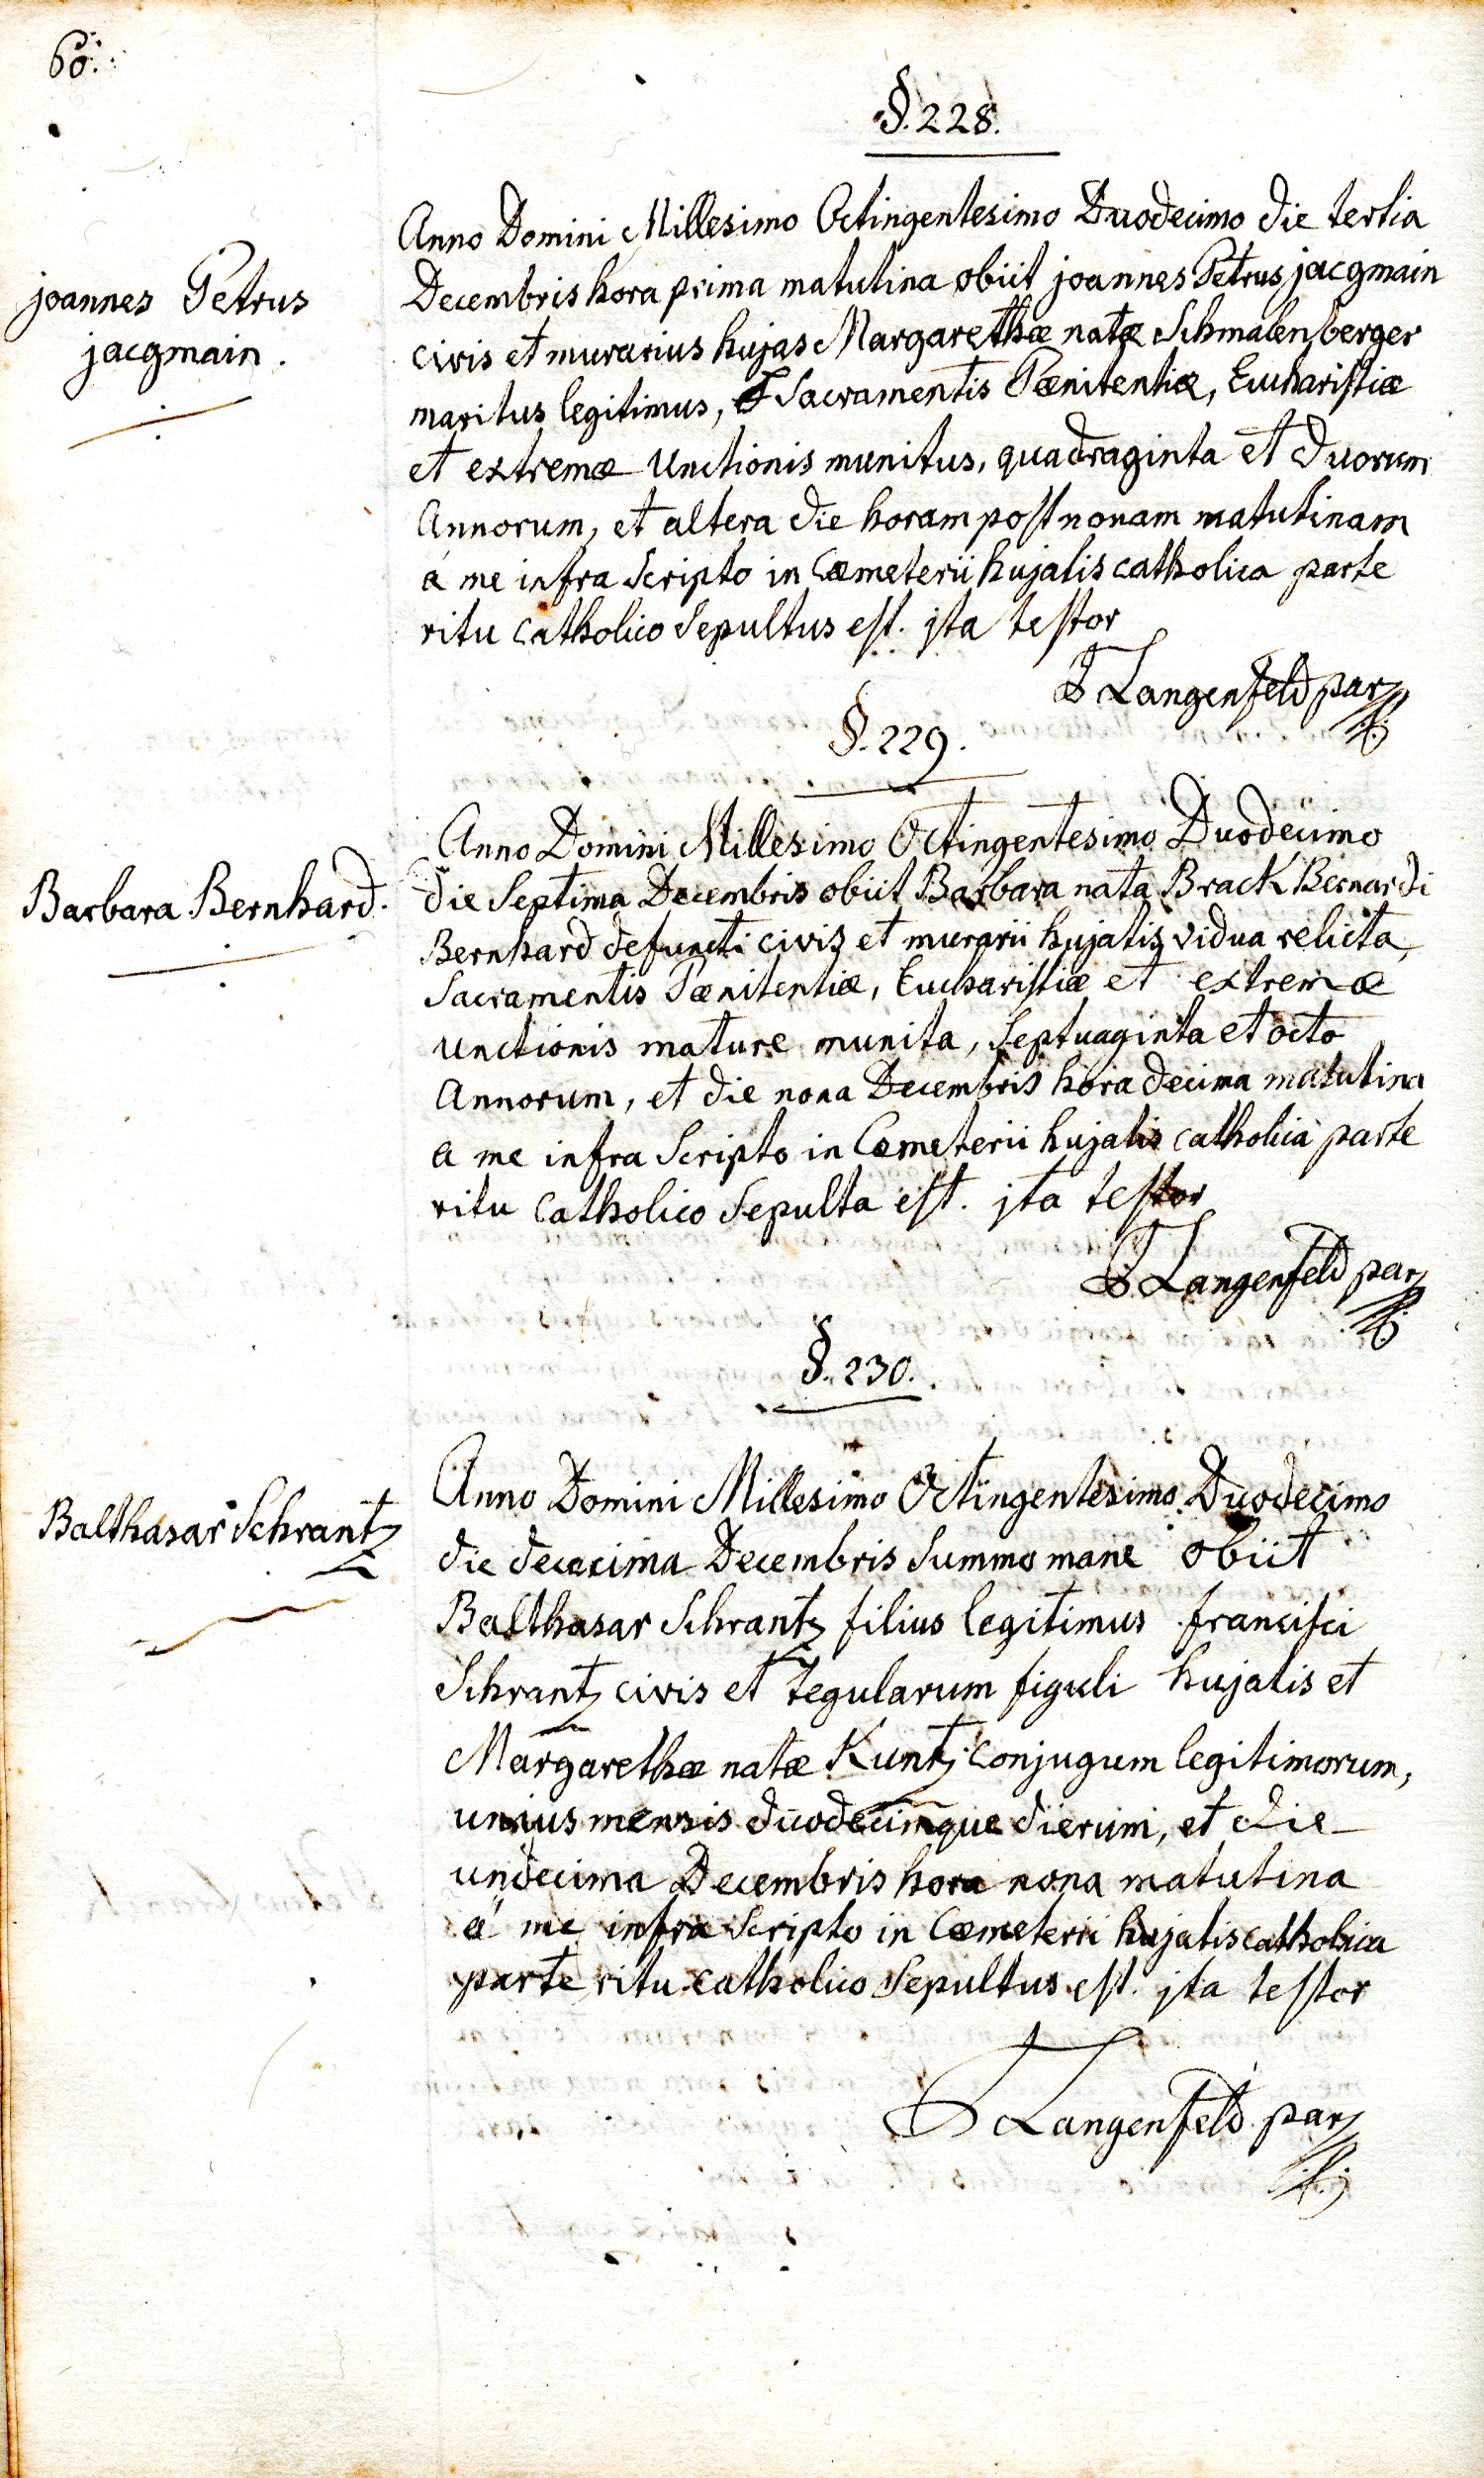 60.
§. 228.
joannes Petrus
jacgmain.
Anno Domini Millesimo Octingentesimo Duodecimo die tertia
Decembris hora prima matutina obiit joannes Petrus jacgmain
civis et murarius hujas Margarethæ natæ Schmalenberger
maritus legitimus, Sacramentis Pœnitentiæ, Eucharistiæ
et extremæ Unctionis munitus, quadraginta et duorum
Annorum, et altera die horam post nonam matutinam
á me infra Scripto in Cœmeterii hujatis catholica parte
ritu catholico Sepultus est. jta testor
Langenfeld par
§. 229.
Barbara Bernhard.
Anno Domini Millesimo Octingentesimo Duodecimo
die Septima Decembris obiit Barbara nata Brack Bernardi
Bernhard defuncti civis et murarii hujatis vidua relicta,
Sacramentis Pœnitentiæ, Eucharistiæ et extremæ
Unctionis mature munita, Septuaginta et octo
Annorum, et die nona Decembris hora decima matutina
a me infra Scripto in Cœmeterii hujatis catholica parte
ritu Catholico Sepulta est. jta testor
Langenfeld par
§. 230.
Balthasar Schrantz
Anno Domini Millesimo Octingentesimo Duodecimo
die dececima Decembris Summo mane obiit
Balthasar Schrantz filius legitimus francisci
Schrantz civis et tegularum figuli hujatis et
Margarethæ natæ Kuntz conjugum legitimorum,
unius mensis duodecimque dierum, et die
undecima Decembris hora nona matutina
á me infra Scripto in Cœmeterii hujatis catholica
parte ritu catholico Sepultus est. jta testor
Langenfeld par